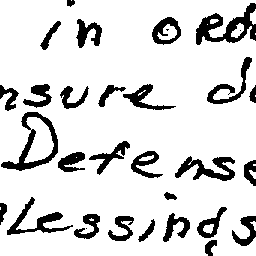 in orde
nsure do
Defense
blessings